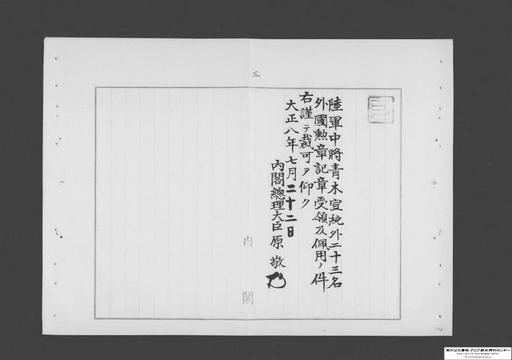 三
陸軍中將青木宣純外二十三名
外國勲章記章受領及佩用ノ件
右謹テ裁可ヲ仰ク
大正八年七月二十二日
內閣總理大臣原敬
內閣